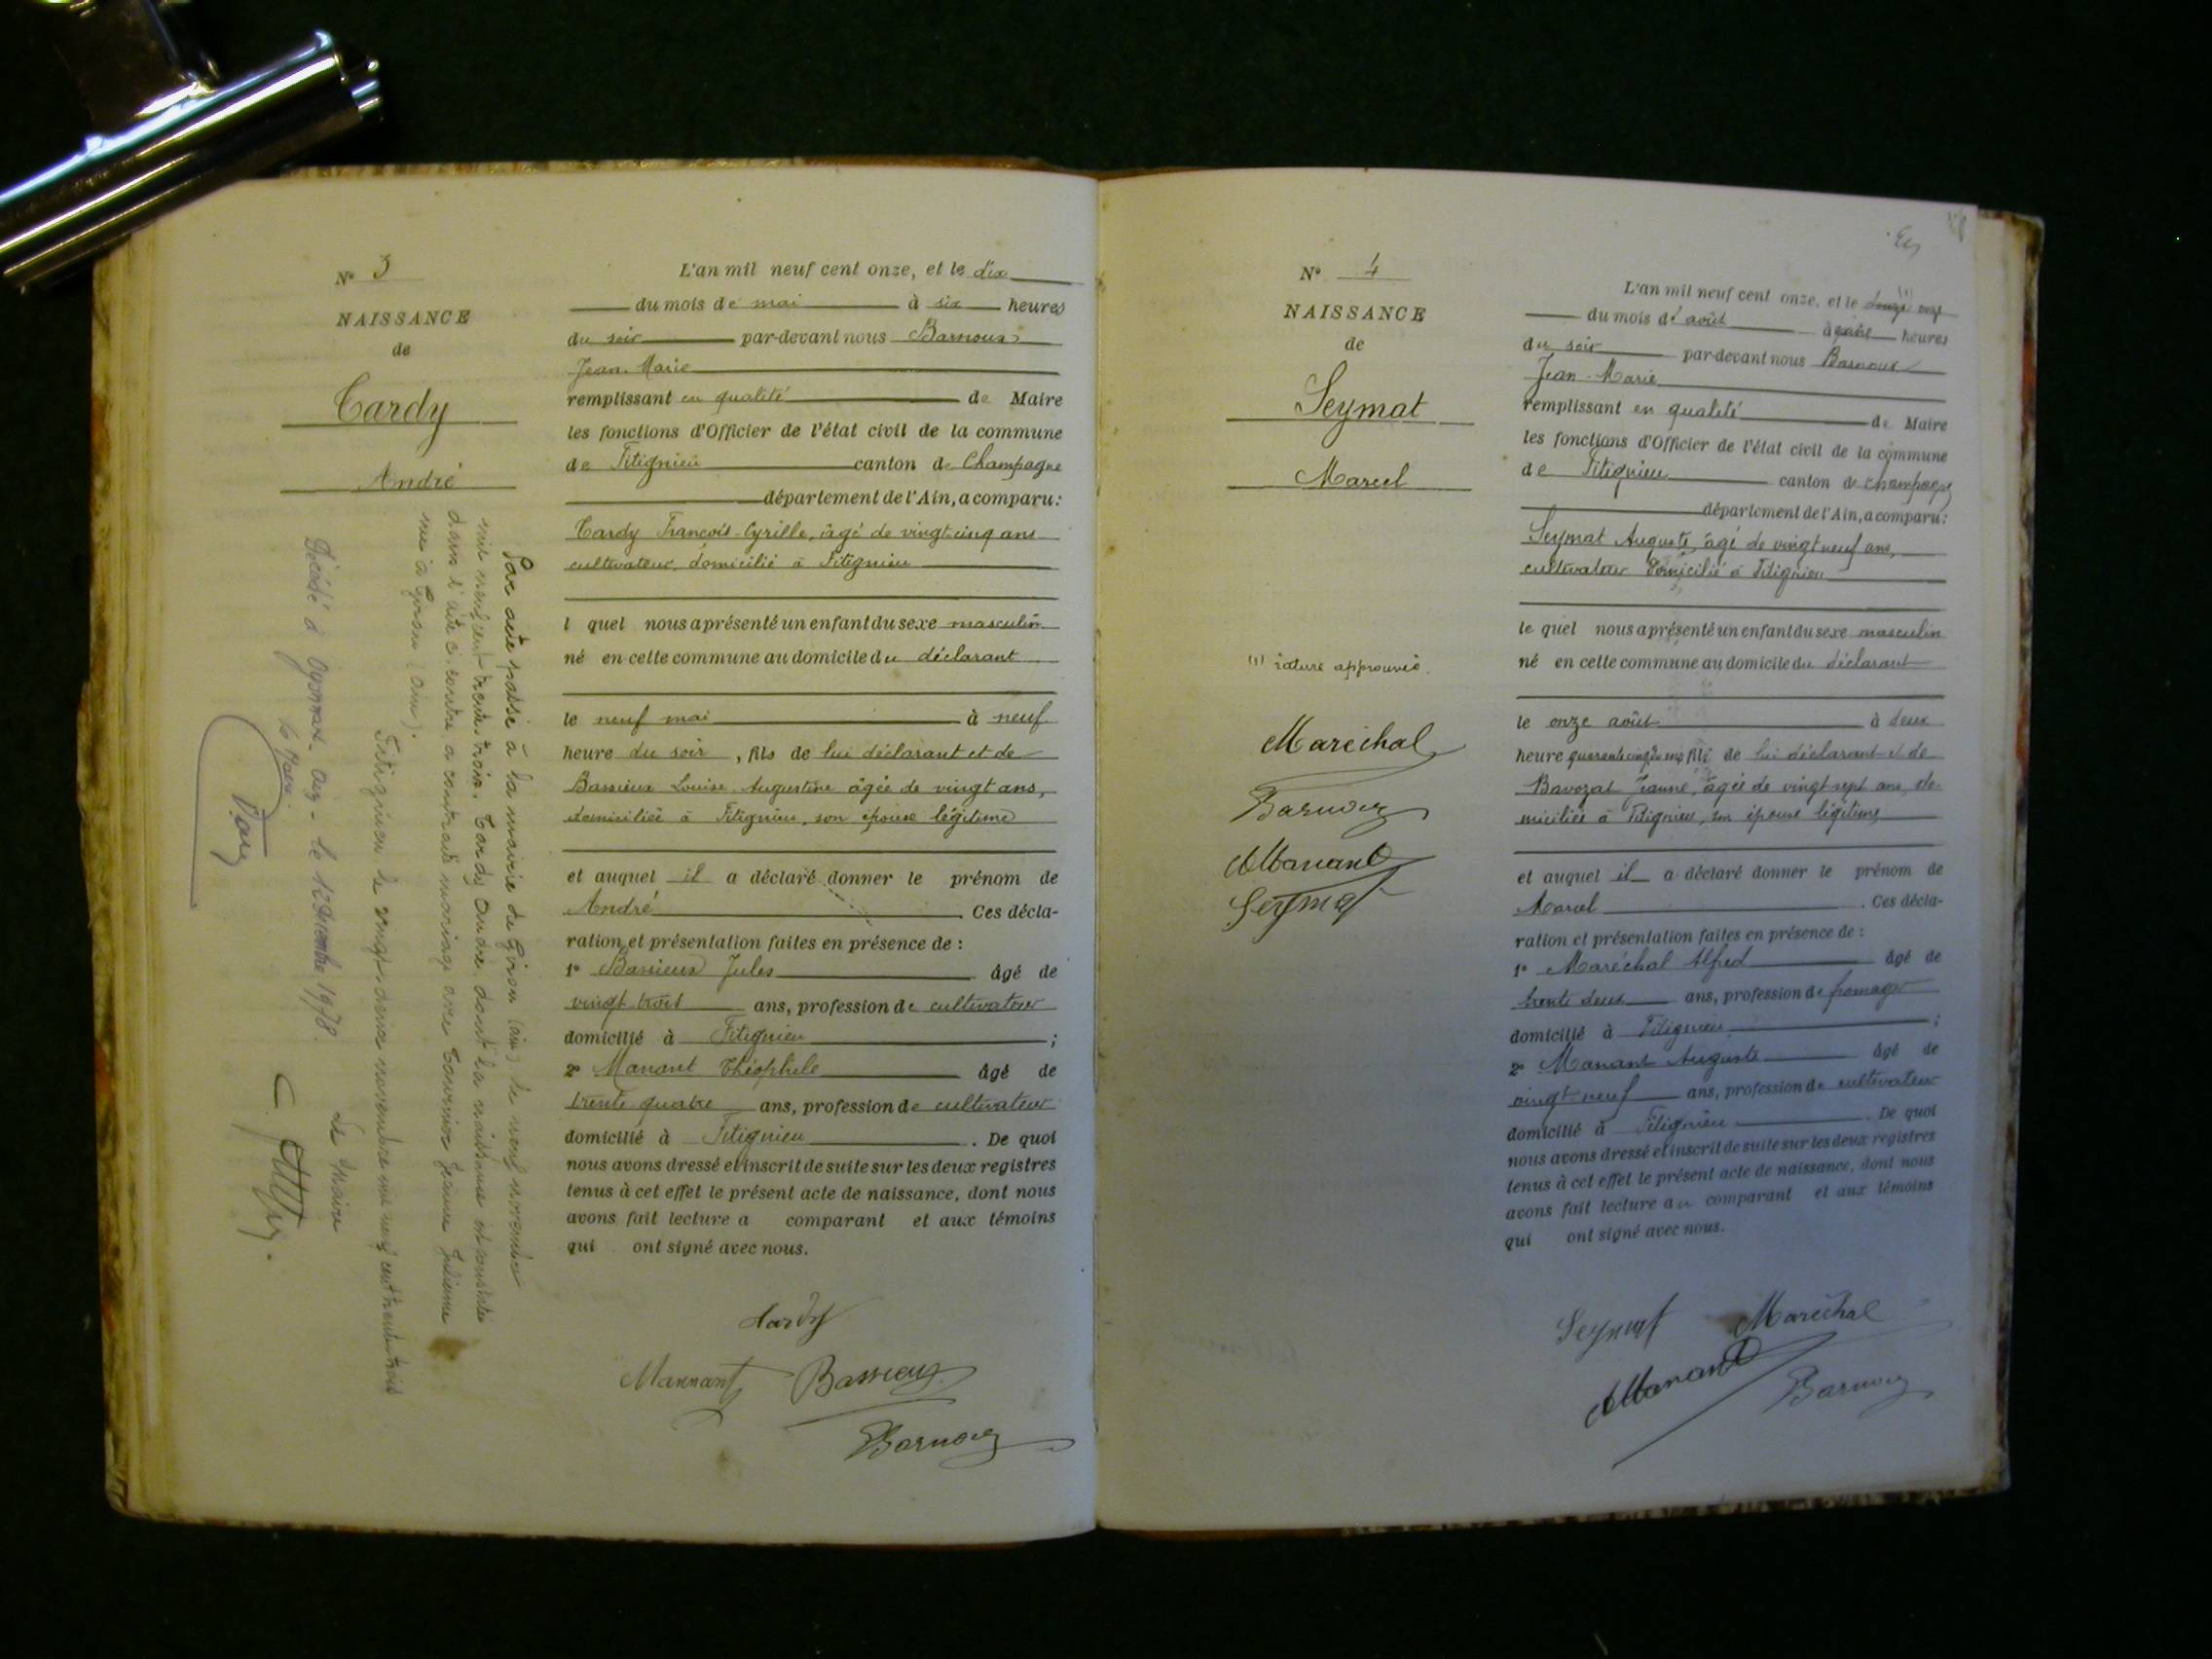 N° 3
NAISSANCE
de
Tardy
André
Par acte passé à la mairie de (ain) le neuf novembre
mil neuf cent trente trois. Tardy André dont la naissance est constatée
dans l'acte ci-contre a contracté mariage avec Jeanne
née à (Ain).
Fitignieu le vingt-deux novembre mil neuf cent trente trois
Le Maire
Décédé à Oyonnax le 1978.
Le Maire.
L'an mil neuf cent onze, et le dix
du mois de mai à six heures
du soir par-devant nous Barnoux
Jean-Marie
remplissant en qualité de Maire
les fonctions d'Officier de l'état civil de la commune
de Fitignieu canton de Champagne
département de l'Ain, a comparu:
Tardy François-Cyrille, âgé de vingt-cinq ans
cultivateur, domicilié à Fitignieu
l quel nous a présenté un enfant du sexe masculin
né en cette commune au domicile du déclarant
le neuf mai à neuf
heure du soir, fils de lui déclarant et de
Bassieux Louise-Augustine âgée de vingt ans,
domiciliée à Fitignieu, son épouse légitime
et auquel il a déclaré donner le prénom de
André. Ces décla-
ration et présentation faites en présence de :
1° Bassieux Jules âgé de
vingt trois ans, profession de cultivateur
domicilié à Fitignieu ;
2° Manant Théophile âgé de
trente quatre ans, profession de cultivateur
domicilié à Fitignieu. De quoi
nous avons dressé et inscrit de suite sur les deux registres
tenus à cet effet le présent acte de naissance, dont nous
avons fait lecture a comparant et aux témoins
qui ont signé avec nous.
Tardy
Mannant Bassieux
Barnoux
N° 4
NAISSANCE
de
Seymat
Marcel
(1) rature approuvée.
Maréchal
Barnoux
A Manant
Seymat
L'an mil neuf cent onze, et le douze (1) onze
du mois d'août à quatre heures
du soir par-devant nous Barnoux
Jean-Marie
remplissant en qualité de Maire
les fonctions d'Officier de l'état civil de la commune
de Fitignieu canton de Champagne
département de l'Ain, a comparu:
Seymat Auguste, âgé de vingt neuf ans,
cultivateur domicilié à Fitignieu
le quel nous a présenté un enfant du sexe masculin
né en cette commune au domicile du déclarant
le onze août à deux
heure quarante cinq du fils de lui déclarant et de
Bavozat Jeanne, âgée de vingt-sept ans, do-
miciliée à Fitignieu, son épouse légitime
et auquel il a déclaré donner le prénom de
Marcel. Ces décla-
ration et présentation faites en présence de :
1° Maréchal Alfred âgé de
trente deux ans, profession de fromager
domicilié à Fitignieu ;
2° Manant Auguste âgé de
vingt neuf ans, profession de cultivateur
domicilié à Fitignieu. De quoi
nous avons dressé et inscrit de suite sur les deux registres
tenus à cet effet le présent acte de naissance, dont nous
avons fait lecture au comparant et aux témoins
qui ont signé avec nous.
Seymat Maréchal
A Manant Barnoux